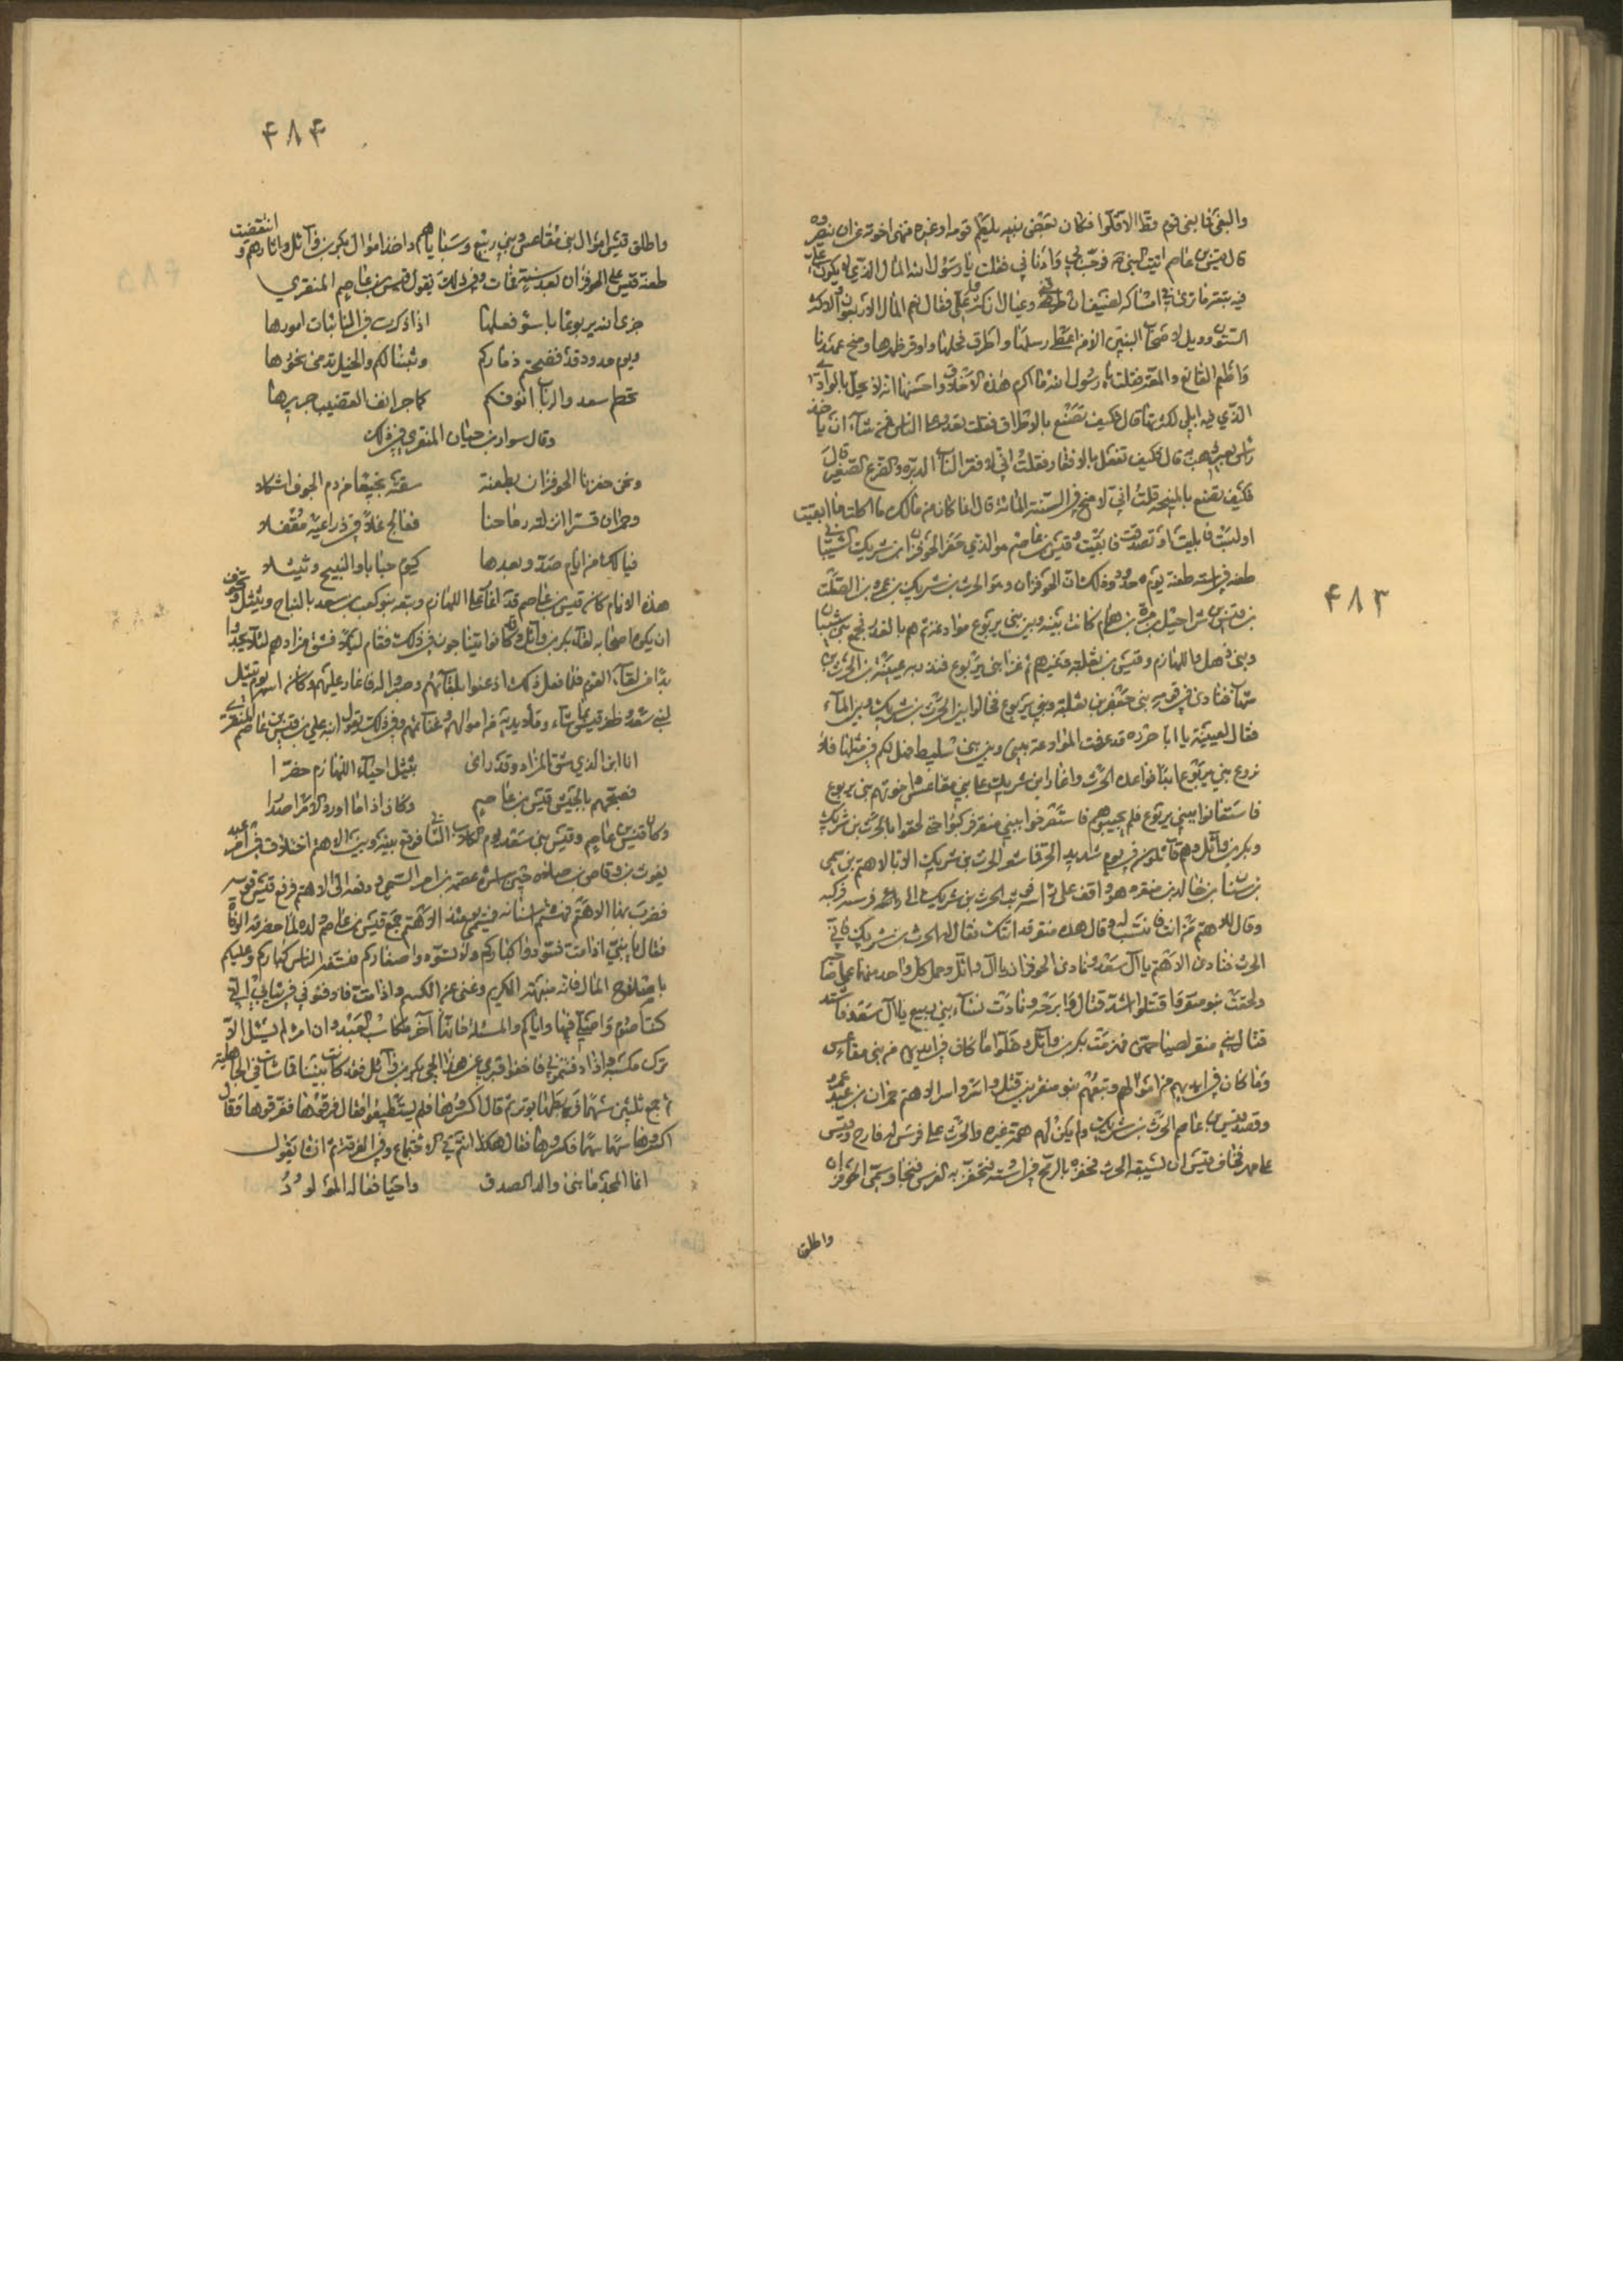 ٤٨٣
والبغي فما بغى قوم قط الا قلوا فكان بعض بنيه يلطمه قومه او غيره فينهى اخوته عن ان ينصروه
قال قيس بن عاصم اتيت النبي فرحب بي وادناني فقلت يا رسول الله المال الذي لا يكون علي
فيه تبعة ما ترى في امساكه لضيف ان طرقني وعيال ان كثروا علي فقال نعم المال الاربعون والاكثر
الستون وويل لاصحاب المئين الا من اعطى رسلها واطرق فحلها وافقر ظهرها ومنح
واطعم القانع والمعتر فقلت يا رسول الله ما اكرم هذه الاخلاق واحسنها انه لا يحل بالوادي
الذي فيه ابلي لكثرتها قال فكيف تصنع بالاطراق فقلت يغدو الناس فمن شاء ان ياخذ
براس بعير ذهب به قال فكيف تفعل بالافقار فقلت اني لا فقر الناب المدبره والضرع الصغير قال
فكيف تصنع بالمنيحه قلت اني لامنح في السنة المائة قال انما لك من مالك ما اكلت فافنيت
او لبست فابليت او تصدقت فابقيت وقيس بن عاصم هو الذي حفز الحوفزان بن شريك الشيباني
طعنه في استه طعنة يوم جدود وذلك ان الحوفزان وهو الحرث بن شريك بن عمرو بن الصلت
بن قيس بن شراحيل بن مرة بن همام كانت بينه وبين بني يربوع موادعة ثم هم بالغدر فجمع بني شيبان
وبني ذهل واللهازم وقيس بن ثعلبة وغيرهم ثم غزا بني يربوع فنذر به عتيبة بن الحرث بن
شهاب فنادى في قومه بني جعفر بن ثعلبة وبني يربوع فحالوا بين الحرث بن شريك وبين الماء
فقال لعتيبة يا ابا حزره قد عرفت الموادعة بيني وبين بني سليط فهل لكم في مثلها فلا
نروع بني يربوع ابدا فوادعه الحرث واغار ابن شريك على بني مقاعس اخوتهم بني يربوع
فاستغاثوا ببني يربوع فلم يجيبوهم فاستصرخوا ببني منقر فركبوا حتى لحقوا بالحرث بن شريك
وبكر بن وائل وهم قائلون في يوم شديد الحر فما شعر الحرث بن شريك الا بالاهتم بن سمي
بن سنان بن خالد بن منقر وهو واقف على راسه فوثب الحرث بن شريك الى فرسه فركبه
وقال للاهتم من انت فانتسب له وقال هذه منقر قد اتتك فقال له الحرث بن شريك فاني
الحرث فنادى الاهتم يا آل سعد ونادى الحوفزان يا آل وائل وحمل كل واحد منهما على صاحبه
ولحقت بنو منقر فاقتتلوا اشد قتال وابرحه ونادت نساء بني ربيع يا آل سعد فاشتد
قتال بني منقر لصياحهن فهزمت بكر بن وائل وخلوا ما كان في ايديهم من بني مقاعس
وما كان في ايديهم من اموالهم وتبعهم بنو منقر بين قتل واسر واسر الاهتم حمران بن عبد عمرو
وقصد قيس بن عاصم الحرث بن شريك ولم يكن له همة غيره والحرث على فرس له قارح وقيس
على مهر فخاف قيس ان يسبقه الحرث فحفزه بالرمح في استه فتحفز به الفرس فنجا وسمي الحوفزان
واطلق
٤٨٤
واطلق قيس اموال بني مقاعس وبني ربيع وسباياهم واخذ اموال بكر بن وائل واساراهم وانتقضت
طعنة قيس على الحوفزان بعد سنة فمات وفي ذلك يقول قيس بن عاصم المنقري
جزى الله يربوعا باسوء فعلها اذا ذكرت في النائبات امورها
ويوم جدود قد فضحتم ذماركم وسالمتم والخيل تدمى نحورها
تخطم سعد والرباب انوفكم كما جر انف القضيب جريرها
وقال سوار بن حيان المنقري في ذلك
ونحن حفزنا الحوفزان بطعنة سقته نجيعا من دم الجوف اشكلا
وحمران قسرا انزلته رماحنا فعالج غلا في ذراعيه مقفلا
فيالك من ايام صدق وبعدها كيوم جباثا والنبيح وثيتلا
هذه الايام كان قيس بن عاصم قد اغار على اللهازم وتبعه بنو كعب بن سعد بالنباج وبثيتل وتخوف
ان يكره اصحابه لقاء بكر بن وائل وقد كانوا يتناجون في ذلك فقام ليلا فشق مزادهم لئلا يجدوا
بدا من لقاء القوم فلما فعل ذلك اذعنوا بلقائهم وصبروا له فاغار عليهم وكان اشهر يوم ثيتل
لبني سعد وظفر قيس بما شاء وملا يديه من اموالهم وغنائمهم وفي ذلك يقول ابنه علي بن قيس بن عاصم المنقري
انا ابن الذي شق المزاد وقد راى بثيتل احياء اللهازم حضرا
فصبحهم بالجيش قيس بن عاصم وكان اذا ما اورد الامر اصدرا
وكان قيس بن عاصم رئيس بني سعد يوم الكلاب الثاني فوقع بينه وبين الاهتم اختلاف في امر عبد
يغوث بن وقاص بن صلاءه حين اسره عصمة بن ابير التيمي ودفعه الى الاهتم فرفع قيس قوسه
فضرب بها الاهتم فهتم اسنانه فيومئذ سمي الاهتم جمع قيس بن عاصم ولده لما حضرته الوفاة
فقال يا بني اذا مت فسودوا كباركم ولا تسودوا صغاركم فيستخف الناس كباركم وعليكم
باصلاح المال فانه منبهة للكريم وغنى عن اللئيم واذا مت فادفنوني في ثيابي التي
كنت اصوم واصلي فيها واياكم والمسئلة فانها آخر مكاسب العبد وان امرء لم يسئل الا
ترك مكسبه واذا دفنتموني فاخفوا قبري عن هذا الحي بكر بن وائل فقد كان بيننا خماشات في الجاهلية
ثم جمع ثلثين سهما فربطها بوتر ثم قال اكسروها فلم يستطيعوا فقال فرقوها ففرقوها فقال
اكسروها سهما سهما فكسروها فقال هكذا انتم في الاجتماع وفي الفرقة ثم انشا يقول
انما المجد ما بنى والد الصدق واحيا فعاله المولود